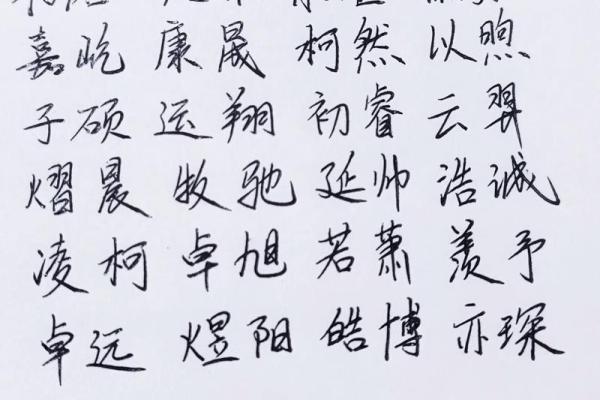 嘉屹 康晟 柯然 以煦
子硕 运翔 初睿 云羿
熠晨 牧驰 延帅 浩诚
凌柯 卓旭 若萧 羡予
卓远 煜阳 皓博 亦琛